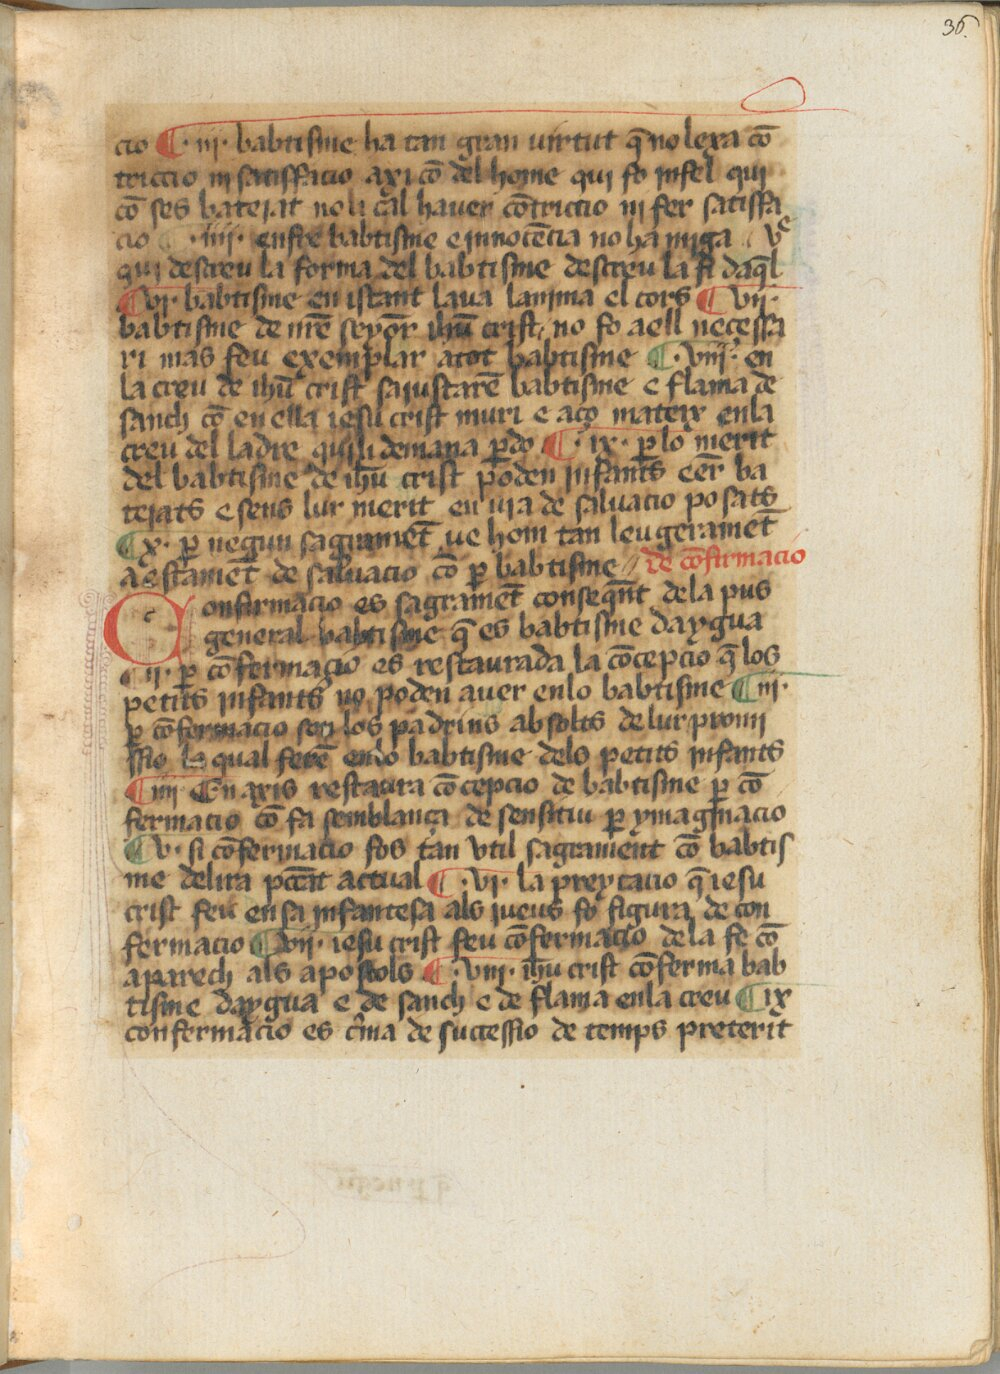 36.
cio ¶ ·iii· babtisme ha tan gran virtut q̄ no lexa cō
triccio ni satisffacio axi cō del home qui fo infel qui
cō ses bateiat no li cal hauer cōtriccio ni fer satisffa
cio ¶ ·iiii· enfre babtisme e innocēcia no ha miga ¶ vͤ
qui descreu la forma del babtisme descreu la fi daq̄l
¶ vi· babtisme en istant laua lanima el cors ¶ vii·
babtisme de nrē seyōr ihū crist no fo a ell necessa
ri mas feu exemplar a tot babtisme ¶ ·viii· en
la creu de ihū crist saiustarē babtisme e flama de
sanch cō en ella iesu crist muri e aço mateix en la
creu del ladre qui li demana p̄do ¶ · ix · p̄ lo merit
del babtisme de ihū crist poden infants eēr ba
teiats e sens lur merit en via de saluacio posats
¶ x· p̄ negun sagramēt ve hom tan leugeramēt
a estamēt de saluacio cō p̄ babtisme de cōfirmacio
Confirmacio es sagramēt conseqn̄t de la pus
general babtisme q̄ es babtisme daygua
¶ ii· p̄ cōfermacio es restaurada la cōcepcio q̄ los
petits infants no poden auer en lo babtisme ¶ iii·
p̄ cōfermacio son los padrins absolts de lur promi
ssio la qual ferē en lo babtisme dels petits infants
¶ iiii· En axis restaura cōcepcio de babtisme p̄ cō
fermacio cō fa semblança de sensitiu p̄ ymaginacio
¶ v· si cōfermacio fos tan vtil sagrament cō babtis
me delira pccāt actual ¶ ·vi· la preycacio q̄ iesu
crist feu en sa infantesa als iueus fo figura de con
fermacio ¶ vii· iesu crist feu cōfermacio de la fe cō
aparech als apostols ¶ ·viii· ihū crist cōferma bab
tisme daygua e de sanch e de flama en la creu ¶ ix
confermacio es cr̄ma de successio de temps preterit